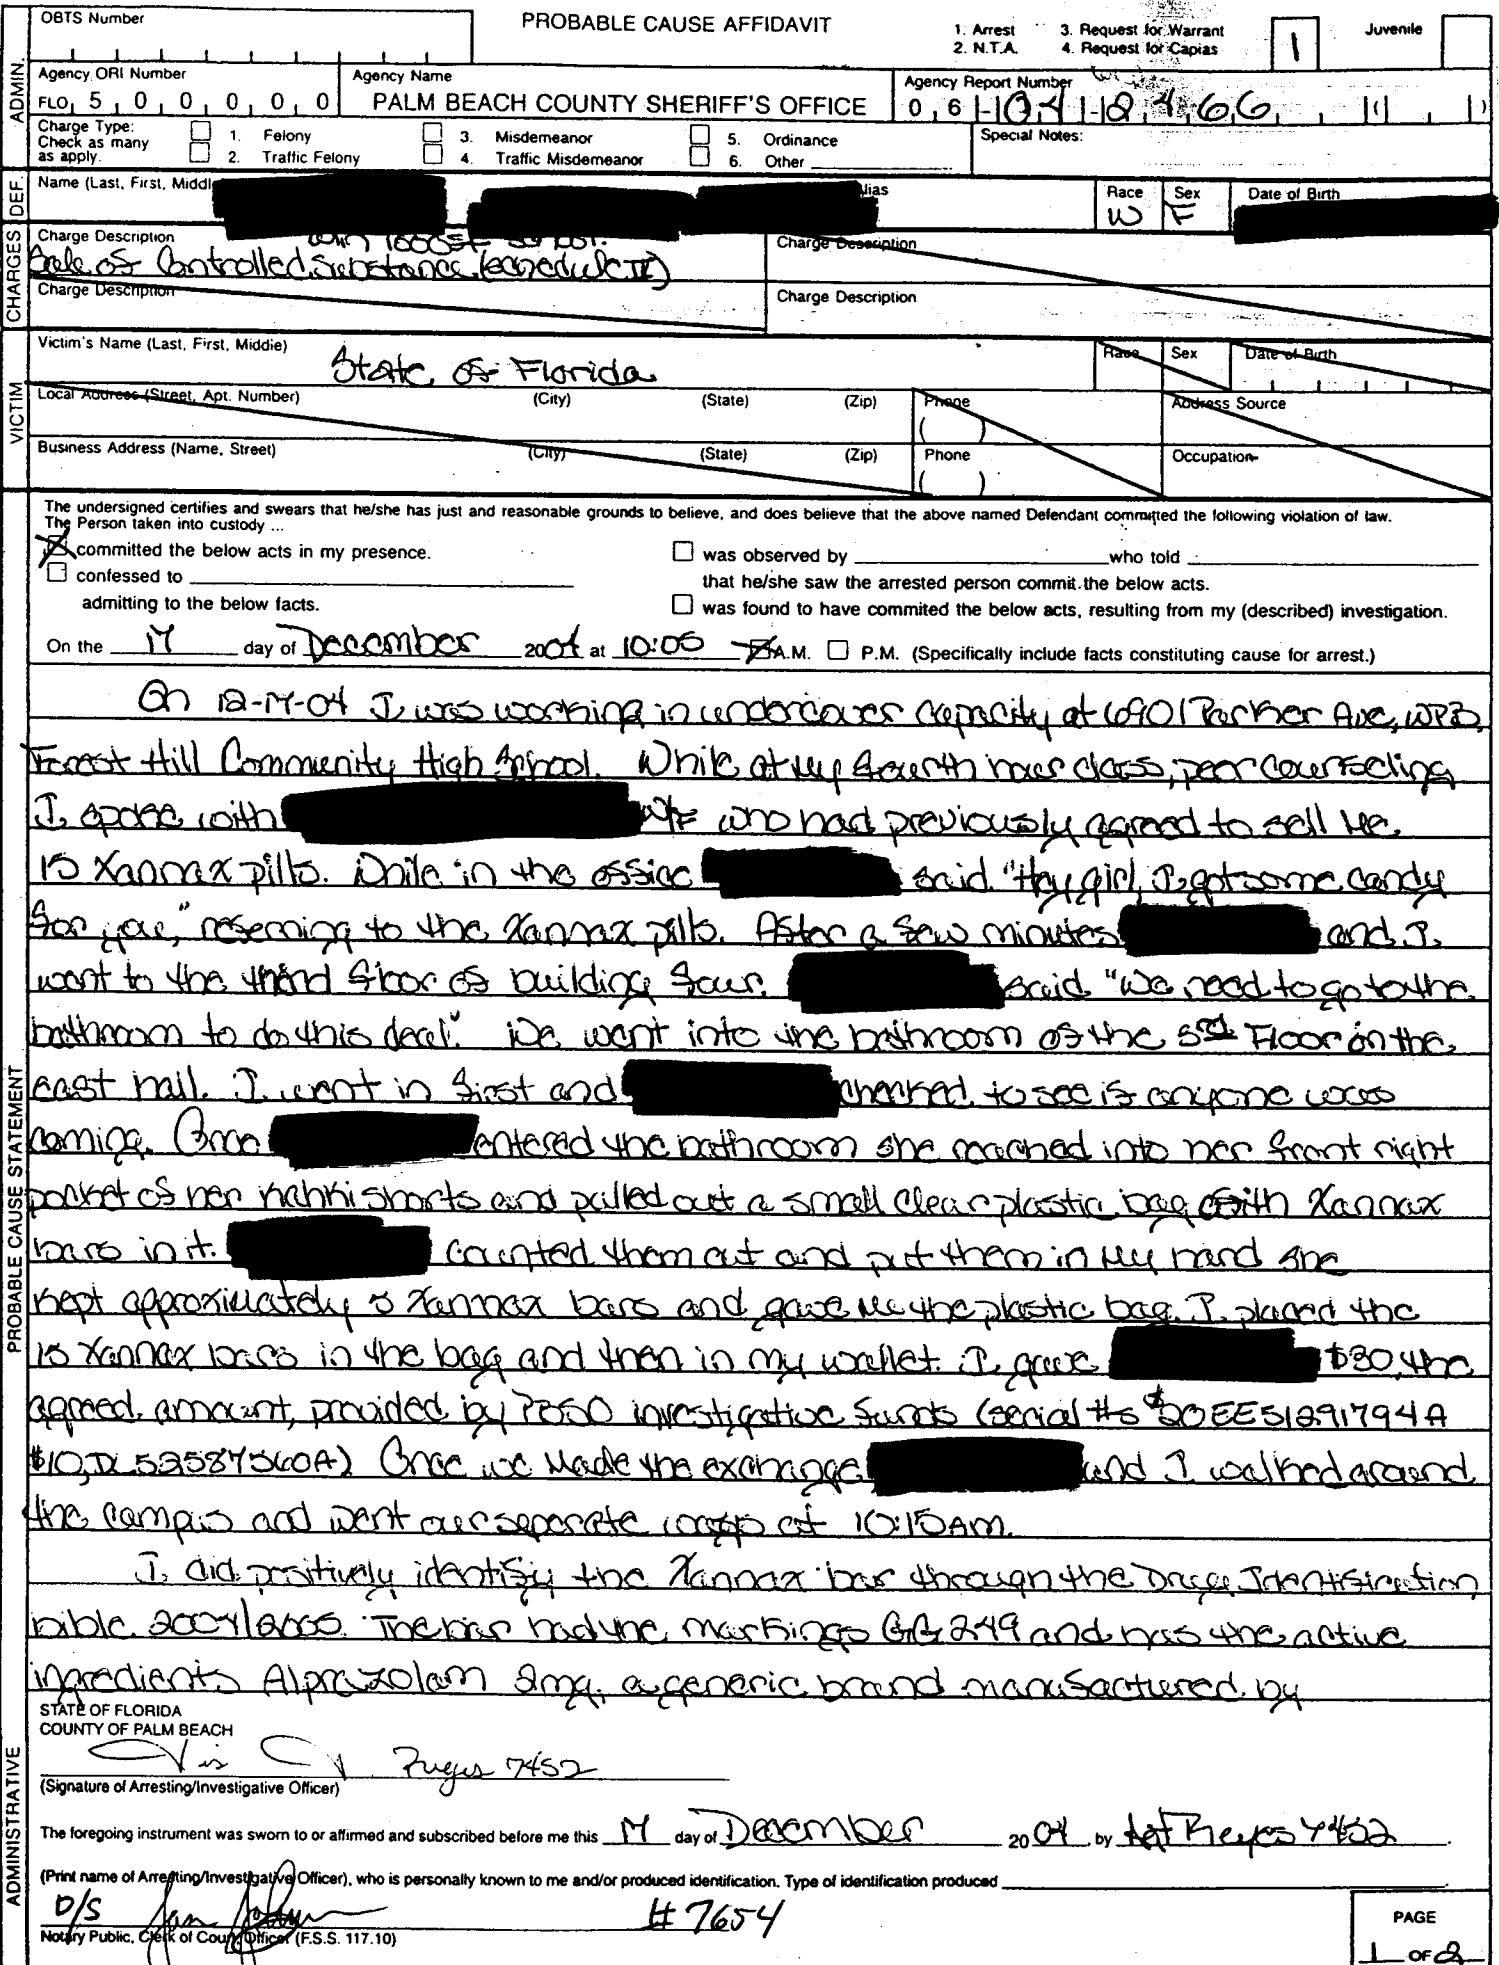 OBTS Number
PROBABLE CAUSE AFFIDAVIT
1. Arrest 3. Request for Warrant
2. N.T.A. 4. Request for Capias
1
Juvenile
ADMIN.
Agency ORI Number
FLO 5 0 0 0 0 0 0
Agency Name
PALM BEACH COUNTY SHERIFF'S OFFICE
Agency Report Number
0 6 - 04 - 12466
Charge Type:
Check as many
as apply.
1. Felony
2. Traffic Felony
3. Misdemeanor
4. Traffic Misdemeanor
5. Ordinance
6. Other
Special Notes:
DEF.
Name (Last, First, Middl
lias
Race
W
Sex
F
Date of Birth
CHARGES
Charge Description
w/in 1000 ft school.
Sale of Controlled Substance (schedule IV)
Charge Description
Charge Description
Charge Description
VICTIM
Victim's Name (Last, First, Middle)
State of Florida
Race
Sex
Date of Birth
Local Address (Street, Apt. Number) (City) (State) (Zip)
Phone
( )
Address Source
Business Address (Name, Street) (City) (State) (Zip)
Phone
( )
Occupation
The undersigned certifies and swears that he/she has just and reasonable grounds to believe, and does believe that the above named Defendant committed the following violation of law.
The Person taken into custody ...
committed the below acts in my presence.
confessed to
admitting to the below facts.
was observed by who told
that he/she saw the arrested person commit the below acts.
was found to have commited the below acts, resulting from my (described) investigation.
On the 17 day of December 2004 at 10:05 A.M. P.M. (Specifically include facts constituting cause for arrest.)
PROBABLE CAUSE STATEMENT
On 12-17-04 I was working in undercover capacity at 6901 Parker Ave, WPB,
Forest Hill Community High School. While at my fourth hour class, peer counseling
I spoke with W/F who had previously agreed to sell me
15 Xannax pills. While in the office said "Hey girl, I got some candy
for you," referring to the Xannax pills. After a few minutes and I
went to the third floor of building four. said "we need to go to the
bathroom to do this deal." We went into the bathroom of the 3rd Floor on the
east hall. I went in first and checked to see if anyone was
coming. Once entered the bathroom she reached into her front right
pocket of her kahki shorts and pulled out a small clear plastic bag with Xannax
bars in it. counted them out and put them in my hand she
kept approximately 5 Xannax bars and gave me the plastic bag. I placed the
15 Xannax bars in the bag and then in my wallet. I gave $30, the
agreed amount, provided by PBSO investigative funds (serial #s $20 EE51291794A
$10, DL52587560A) Once we made the exchange and I walked around
the campus and went our separate ways at 10:15AM.
I did positively identify the Xannax bar through the Drug Identification
bible 2004/2005. The bar had the markings GG249 and has the active
ingredients Alprazolam 2mg, a generic brand manufactured by
ADMINISTRATIVE
STATE OF FLORIDA
COUNTY OF PALM BEACH
7452
(Signature of Arresting/Investigative Officer)
The foregoing instrument was sworn to or affirmed and subscribed before me this 17 day of December 2004 by Agt Reyes 7452
(Print name of Arresting/Investigative Officer), who is personally known to me and/or produced identification. Type of identification produced
D/S #7654
Notary Public, Clerk of Court, Officer (F.S.S. 117.10)
PAGE
1 OF 2